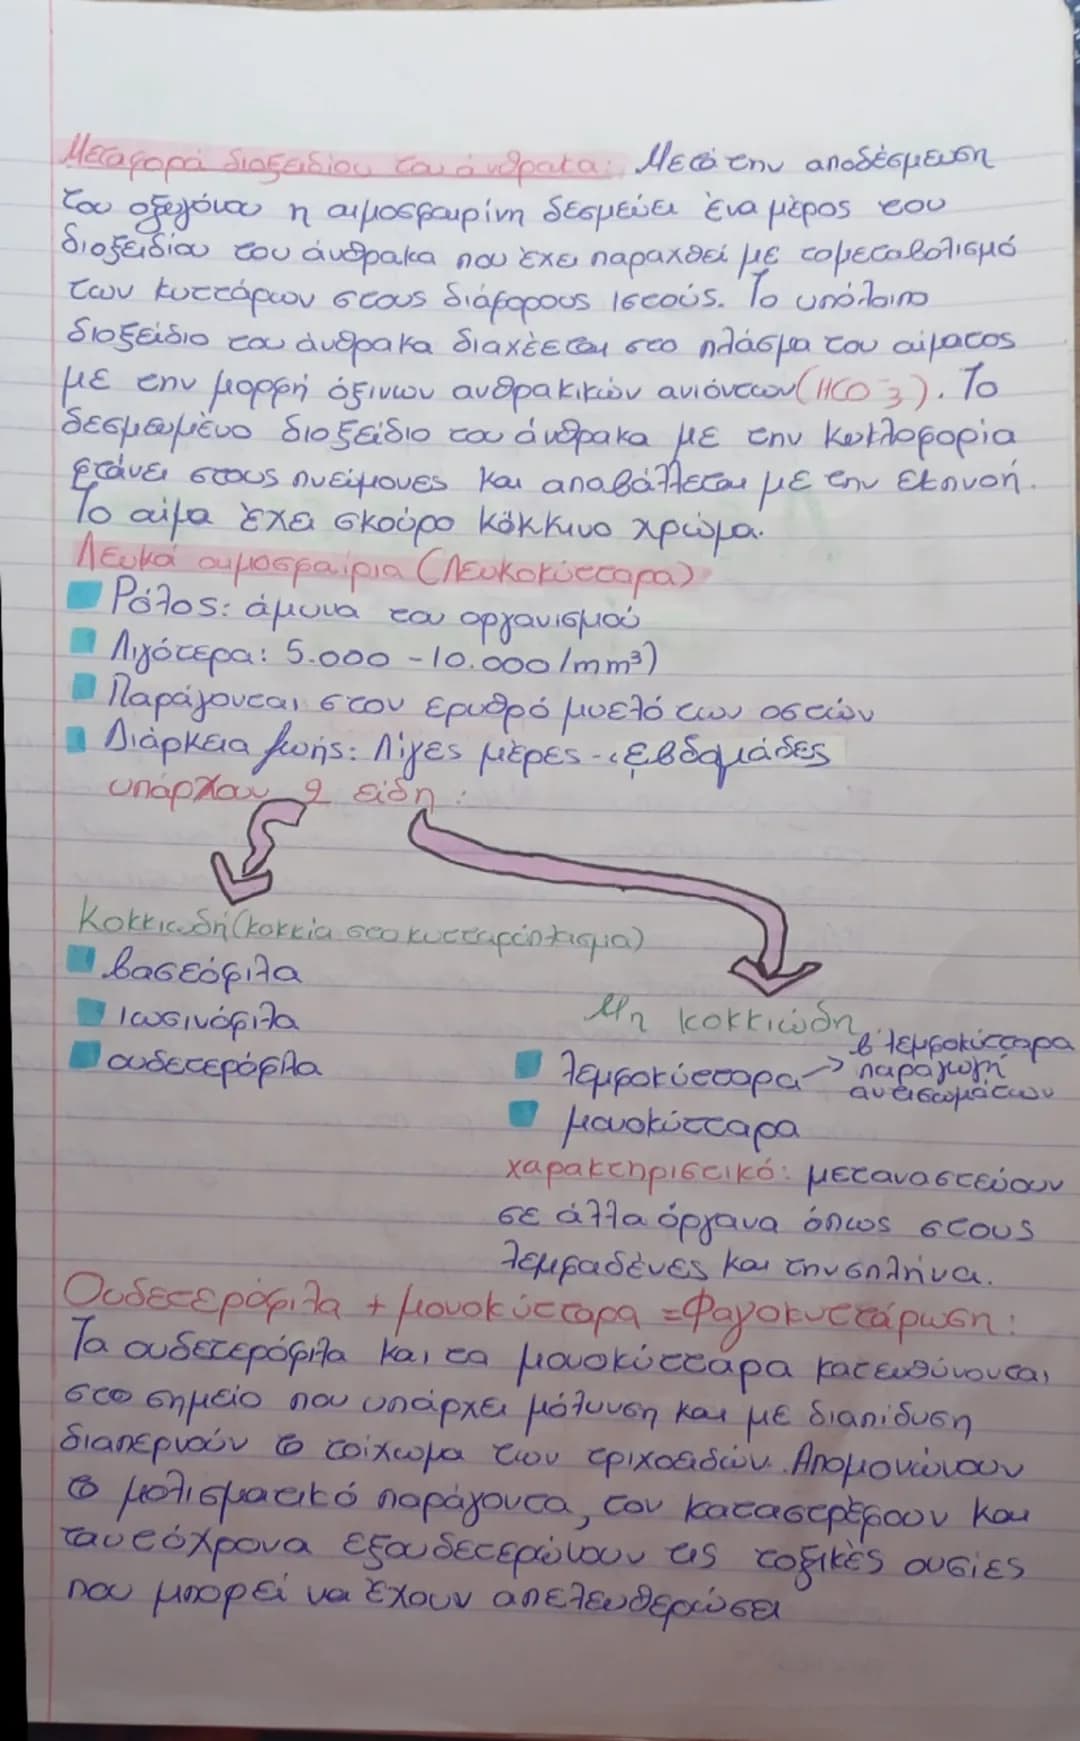 Μεταφορά διοξειδίου του άνθρακα: Μετά την αποδέσμευση
του οξυγόνου η αιμοσφαιρίνη δεσμεύει ένα μέρος του
διοξειδίου του άνθρακα που έχει παραχθεί με το μεταβολισμό
των κυττάρων στους διάφορους ιστούς. Το υπόλοιπο
διοξείδιο του άνθρακα διαχέεται στο πλάσμα του αίματος
με την μορφή όξινων ανθρακικών ανιόντων (HCO⁻3). Το
δεσμευμένο διοξείδιο του άνθρακα με την κυκλοφορία
φτάνει στους πνεύμονες και αποβάλλεται με την εκπνοή.
Το αίμα έχει σκούρο κόκκινο χρώμα.
Λευκά αιμοσφαίρια (Λευκοκύτταρα)
Ρόλος: άμυνα του οργανισμού
Λιγότερα: 5.000 - 10.000/mm³)
Παράγονται στον ερυθρό μυελό των οστών
Διάρκεια ζωής: Λίγες μέρες - εβδομάδες
υπάρχουν 2 είδη:
Κοκκιώδη (κοκκία στο κυτταρόπλασμα)
βασεόφιλα
ιωσινόφιλα
ουδετερόφιλα
Μη κοκκιώδη
λεμφοκύτταρα → β λεμφοκύτταρα
παραγωγή
αντισωμάτων
μονοκύτταρα
χαρακτηριστικό: μεταναστεύουν
σε άλλα όργανα όπως στους
λεμφαδένες και την σπλήνα.
Ουδετερόφιλα + μονοκύτταρα = Φαγοκυττάρωση:
Τα ουδετερόφιλα και τα μονοκύτταρα κατευθύνονται
στο σημείο που υπάρχει μόλυνση και με διαπίδυση
διαπερνούν το τοίχωμα των τριχοειδών. Απομονώνουν
το μολισματικό παράγοντα, τον καταστρέφουν και
ταυτόχρονα εξουδετερώνουν τις τοξικές ουσίες
που μπορεί να έχουν απελευθερώσει